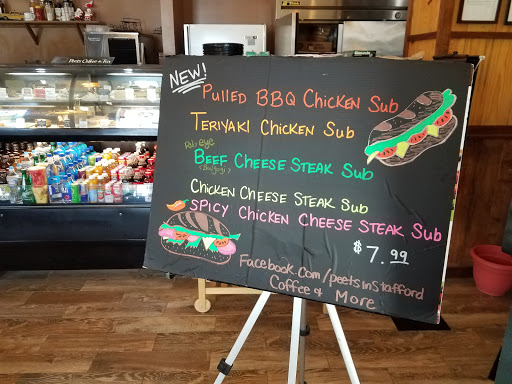 Peets Coffee & Tea
NEW!
Pulled BBQ Chicken Sub
Teriyaki Chicken Sub
Rib eye
Beef Cheese Steak Sub
(Bulgogi)
Chicken Cheese Steak Sub
Spicy Chicken Cheese Steak Sub
$7.99
Facebook.com/peetsinstafford
Coffee & More